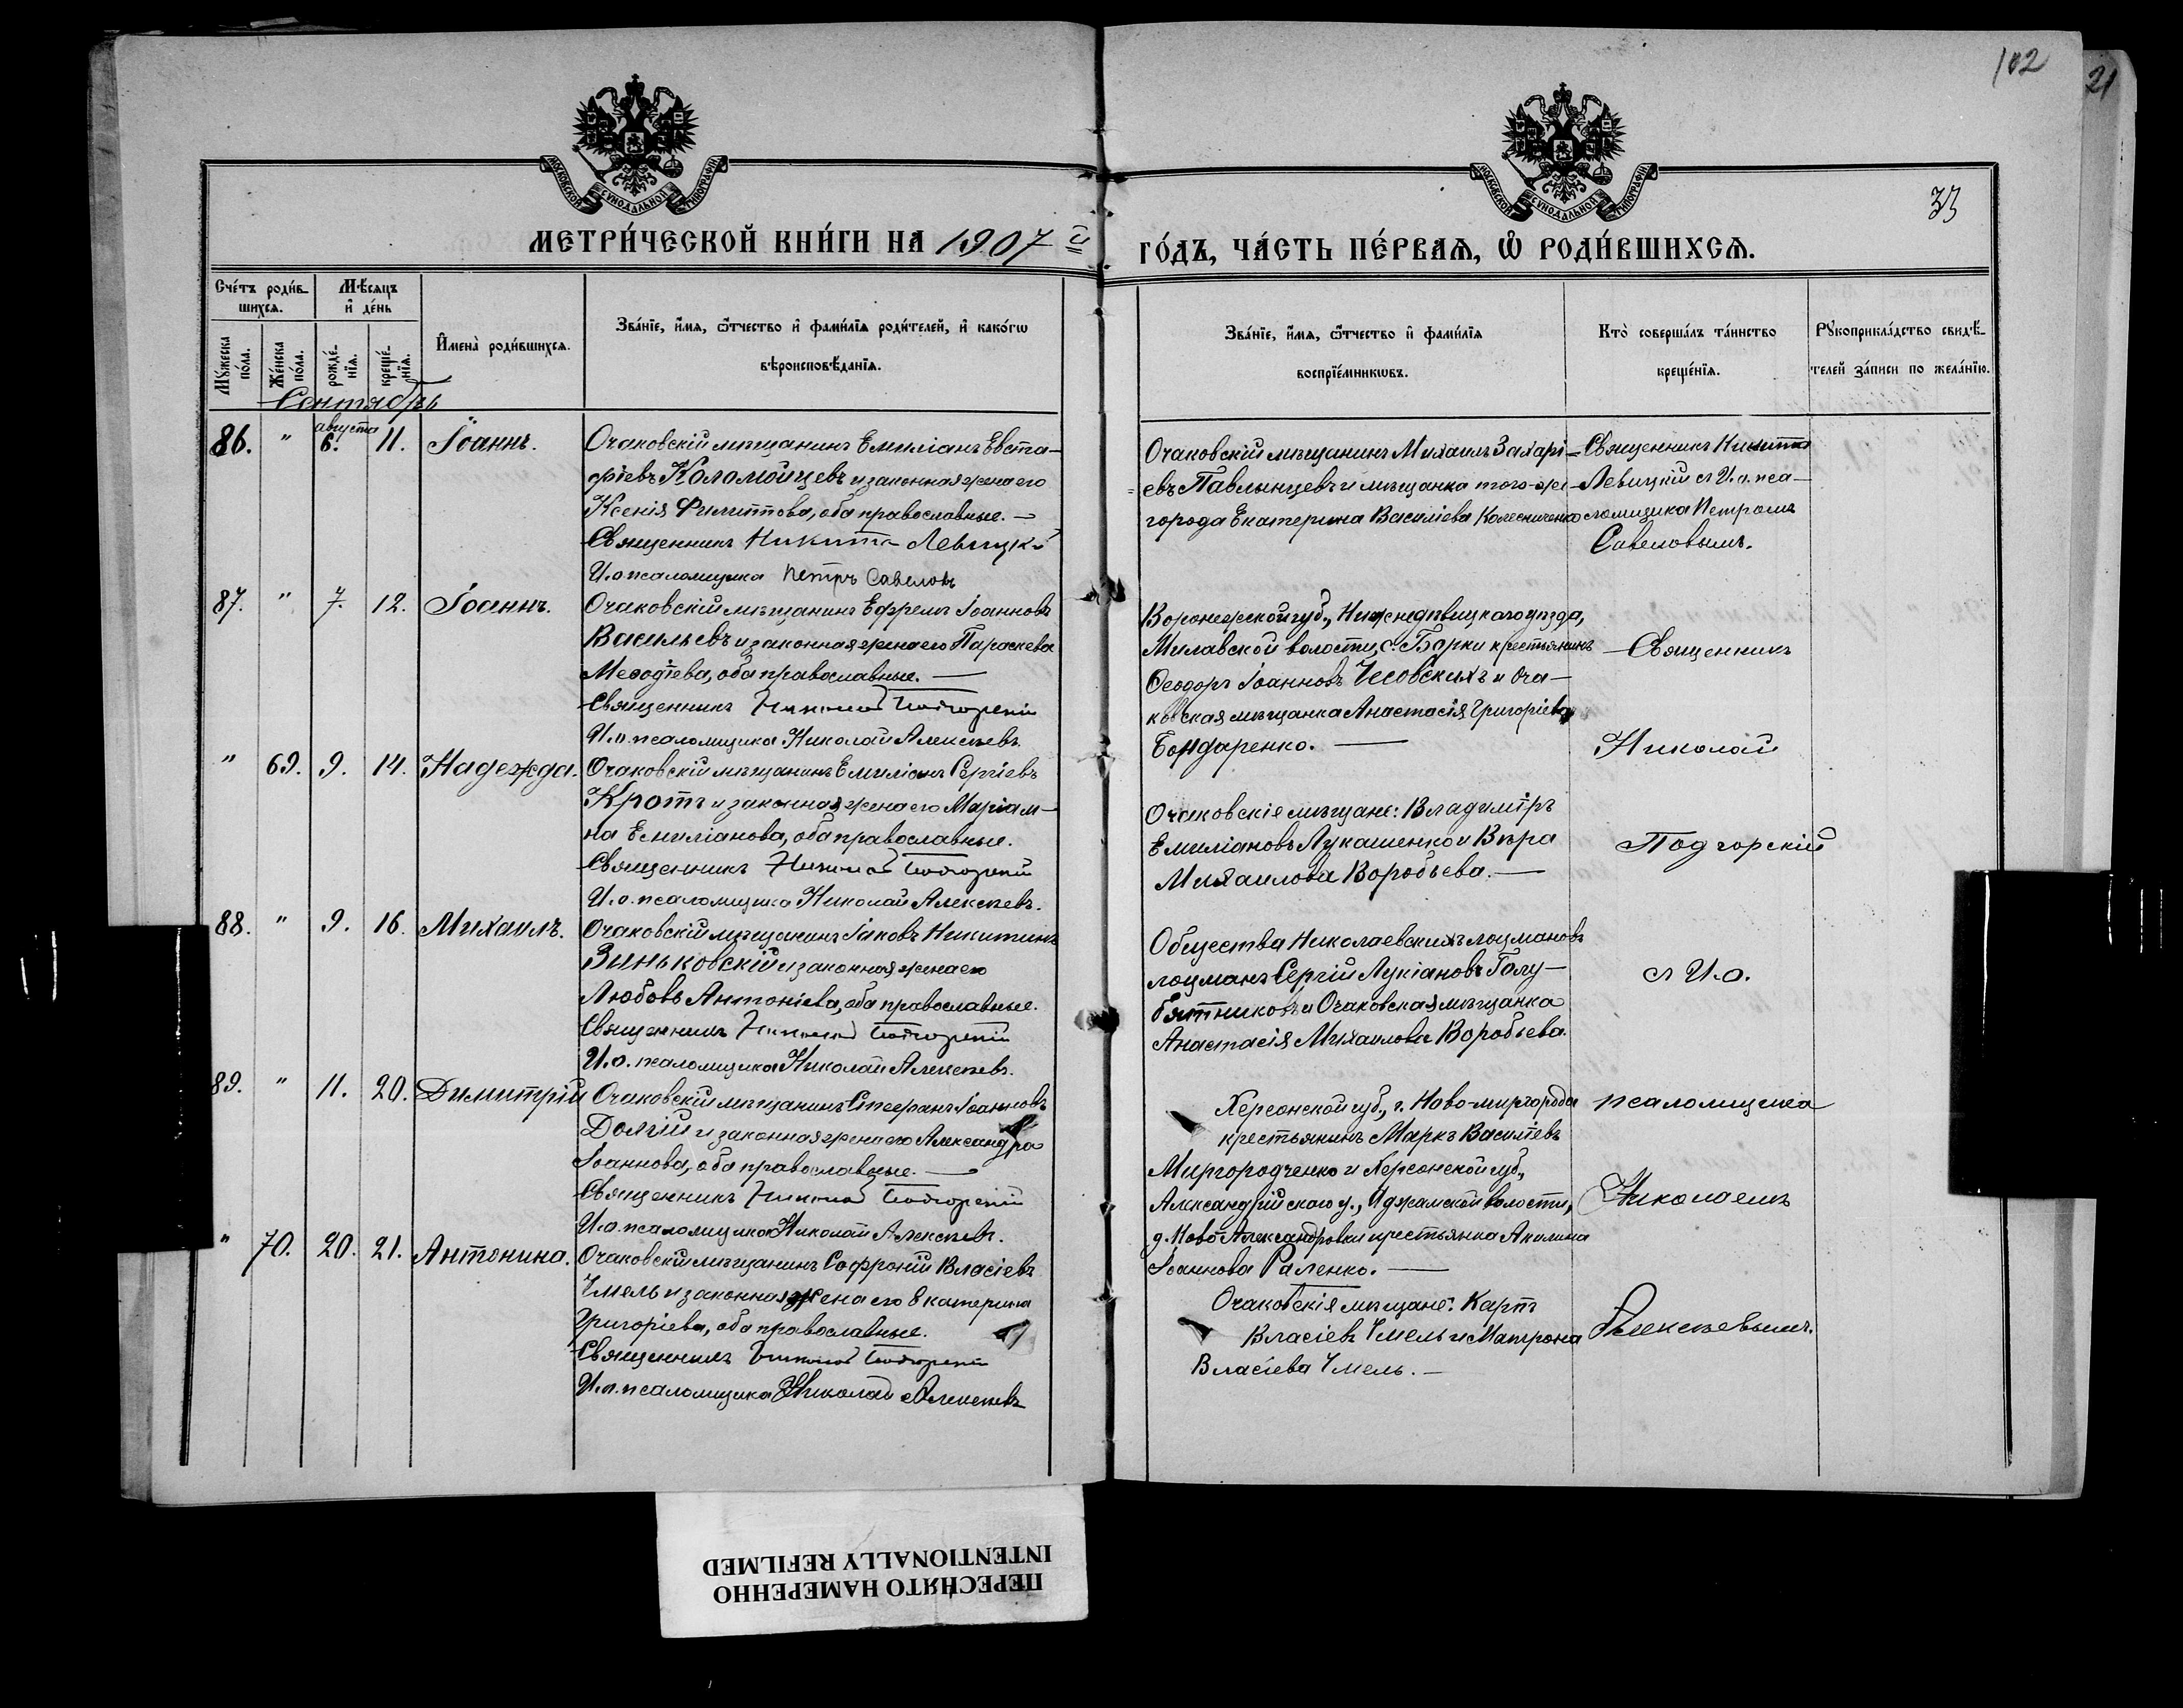 102
21
33
МОСКОВСКОЙ СѴНОДАЛЬНОЙ ТИПОГРАФІИ
МОСКОВСКОЙ СѴНОДАЛЬНОЙ ТИПОГРАФІИ
МЕТРИ́ЧЕСКОЙ КНИ́ГИ НА 1907 й
ГО́ДЪ, ЧА́СТЬ ПЕ́РВАѦ, Ѡ҆ РОДИ́ВШИХСѦ.
Сче́тъ роди́в-
шихсѧ.
Мꙋ́жеска по́ла.
Же́нска по́ла.
Мѣ́сѧцъ
и҆ де́нь
рожде́-нїѧ.
креще́-нїѧ.
И҆мена̀ роди́вшихсѧ.
Зва́нїе, и҆́мѧ, ѻ҆́тчество и҆ фами́лїѧ роди́телей, и҆ како́гѡ
вѣроисповѣ́данїѧ.
Зва́нїе, и҆́мѧ, ѻ҆́тчество и҆ фами́лїѧ
воспрїе́мникѡвъ.
Кто̀ соверша́лъ та́инство
креще́нїѧ.
Рꙋкоприкла́дство свидѣ́-
телей за́писи по жела́нїю.
Сентябрь
86. " августа 6. 11. Іоаннъ.
Очаковскій мѣщанинъ Емиліанъ Евста-
фіевъ Коломойцевъ и законная жена его
Ксенія Филиппова, оба православные. —
Священникъ Никита Левицкій
И. о псаломщика Петръ Савеловъ
Очаковскій мѣщанинъ Михаилъ Захарі-
евъ Павлынцевъ и мѣщанка того-же
города Екатерина Василіева Колесниченко
Священникъ Никита
Левицкій съ И. о. пса-
ломщика Петромъ
Савеловымъ.
87. " 7. 12. Іоаннъ.
Очаковскій мѣщанинъ Ефремъ Іоанновъ
Васильевъ и законная жена его Параскева
Меѳодіева, оба православные. —
Священникъ Николай Подгорскій
И. о. псаломщика Николай Алексѣевъ
Воронежской губ., Нижнедѣвицкаго уѣзда,
волости, с. Борки крестьянинъ
Ѳеодоръ Іоанновъ Чесовскихъ и Оча-
ковская мѣщанка Анастасія Григоріева
Бондаренко. —
" 69. 9. 14. Надежда.
Очаковскій мѣщанинъ Емиліанъ Сергіевъ
Кротъ и законная жена его Маріам-
на Емиліанова, оба православные.
Священникъ Николай Подгорскій
И. о. псаломщика Николай Алексѣевъ.
Очаковскіе мѣщане: Владиміръ
Емиліановъ Лукашенко и Вѣра
Михаилова Воробьева. —
88. " 9. 16. Михаилъ.
Очаковскій мѣщанинъ Іаковъ Никитинъ
Зиньковскій и законная жена его
Любовь Антоніева, оба православные.
Священникъ Николай Подгорскій
И. о. псаломщика Николай Алексѣевъ.
Общества Николаевскихъ лоцмановъ
лоцманъ Сергій Лукіановъ Голу-
бятниковъ и Очаковская мѣщанка
Анастасія Михаилова Воробьева.
89. " 11. 20. Димитрій
Очаковскій мѣщанинъ Стефанъ Іоанновъ
Долгій и законная жена его Александра
Іоаннова, оба православные. —
Священникъ Николай Подгорскій
И. о. псаломщика Николай Алексѣевъ.
Херсонской губ., г. Ново-миргорода
крестьянинъ Маркъ Василіевъ
Миргородченко и Херсонской губ.,
Александрійскаго у., волости,
д. Ново-Александровки крестьянка Акилина
Іоаннова Раленко. —
" 70. 20. 21. Антонина.
Очаковскій мѣщанинъ Софроній Власіевъ
Чмель и законная жена его Екатерина
Григоріева, оба православные.
Священникъ Николай Подгорскій
И. о. псаломщика Николай Алексѣевъ
Очаковскія мѣщане: Карпъ
Власіевъ Чмель и Матрона
Власіева Чмель. —
Священникъ
Николай
Подгорскій
съ И. о.
псаломщика
Николаемъ
Алексѣевымъ.
ПЕРЕСНЯТО НАМЕРЕННО
INTENTIONALLY REFILMED